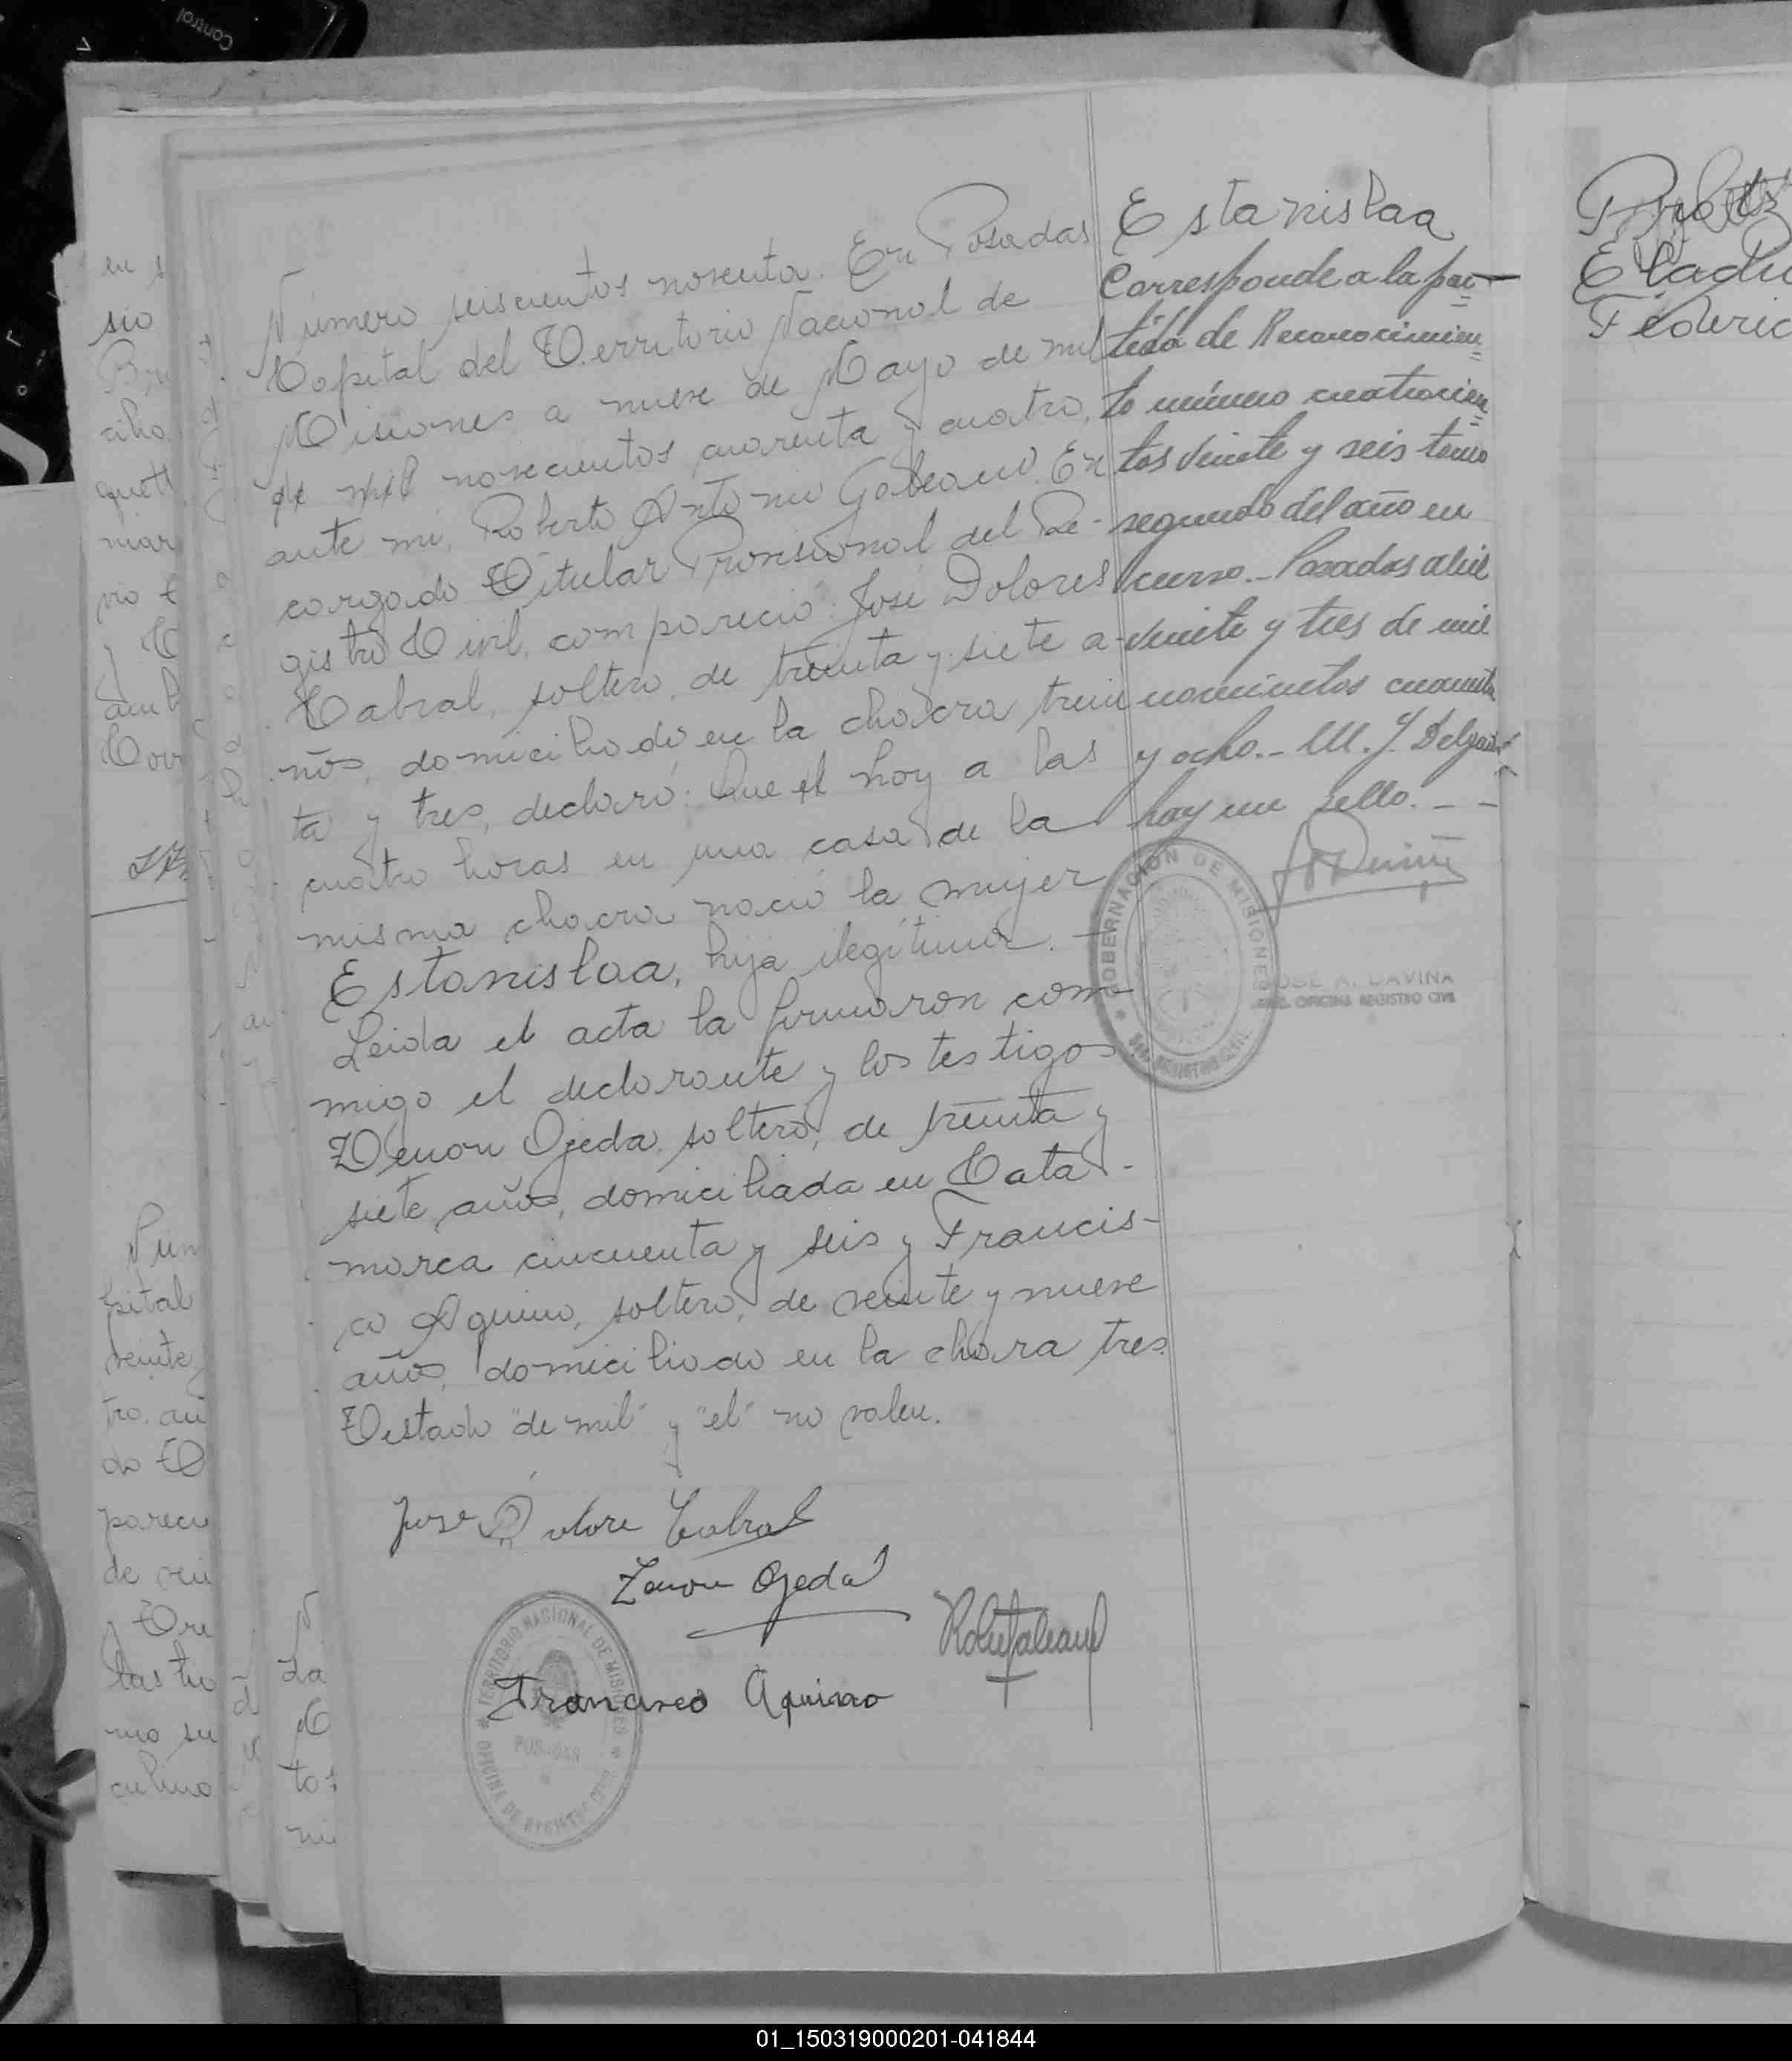 Control
Número seiscientos noventa. En Posadas
Capital del Territorio Nacional de
Misiones a nueve de Mayo de mil
de mil novecientos cuarenta y cuatro,
ante mí, Roberto Antonio Galeano En
cargado Titular Provisional del Re-
gistro Civil, compareció: José Dolores
Cabral, soltero, de treinta y siete a-
ños, domiciliado en la chacra trein
ta y tres, declaró: Que el hoy a las
cuatro horas en una casa de la
misma chacra nació la mujer
Estanislaa, hija ilegítima. —
Leida el acta la firmaron con-
migo el declarante y los testigos
Zenon Ojeda, soltero, de treinta y
siete años, domiciliada en Cata-
marca cincuenta y seis y Francis-
co Aquino, soltero, de veinte y nueve
años, domiciliado en la chara tres.
Testado "de mil" y "el" no valen.
José Dolore Cabral
Zenon Ojeda
Francisco Aquino
TERRITORIO NACIONAL DE MISIONES
POSADAS
OFICINA DE REGISTRO CIVIL
Estanislaa
Corresponde a la par-
tida de Reconocimien=
to número cuatrocien=
tos veinte y seis tomo
segundo del año en
curso.- Posadas abril
veinte y tres de mil
novecientos cuarenta
y ocho.- M. J. Delgado
hay un sello. - -
GOBERNACION DE MISIONES
JOSE A. DAVIÑA
OFICINA REGISTRO CIVIL
Eladio
Federic
en s
sio
ciho
mar
Núm
pital
veinte
tro, an
parecu
to
01_150319000201-041844